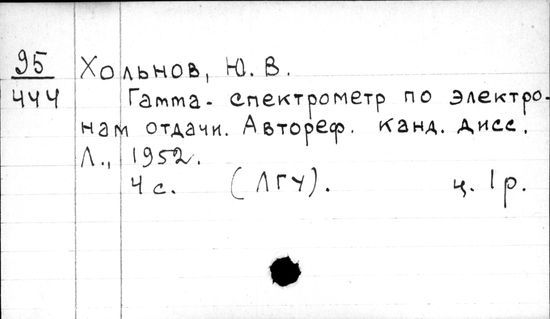 95
444
Хольнов, Ю. В.
Гамма-спектрометр по электро-
нам отдачи. Автореф. канд. дисс.
Л., 1952.
4 с. (ЛГУ). ц. 1 р.